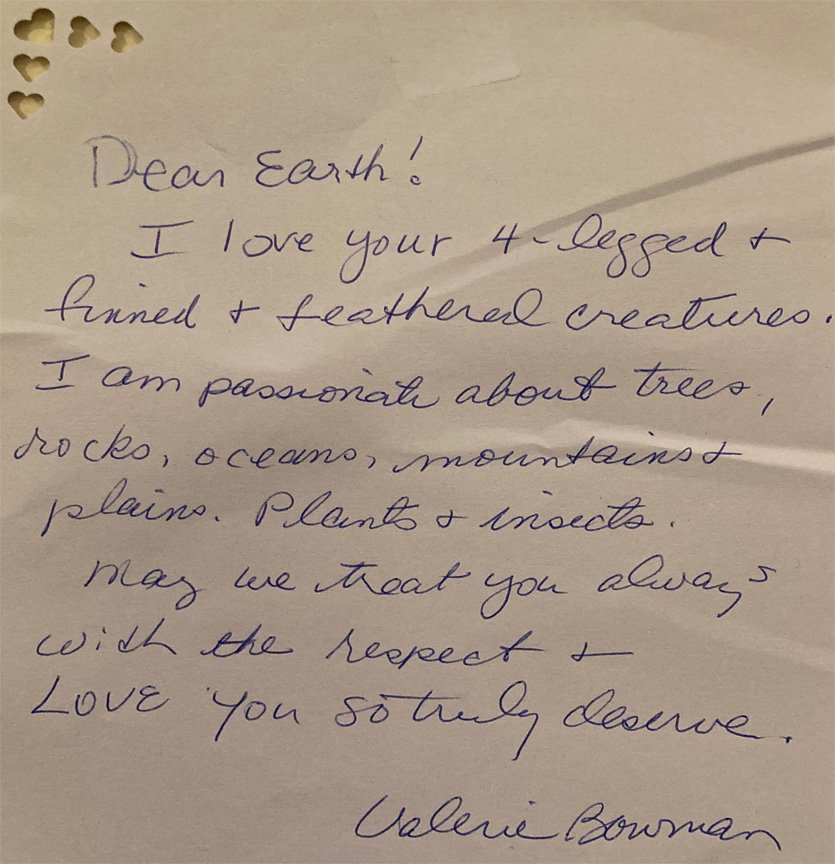 Dear Earth!
I love your 4-legged +
finned + feathered creatures.
I am passionate about trees,
rocks, oceans, mountains +
plains. Plants + insects.
May we treat you always
with the respect +
LOVE you so truly deserve.
Valerie Bowman